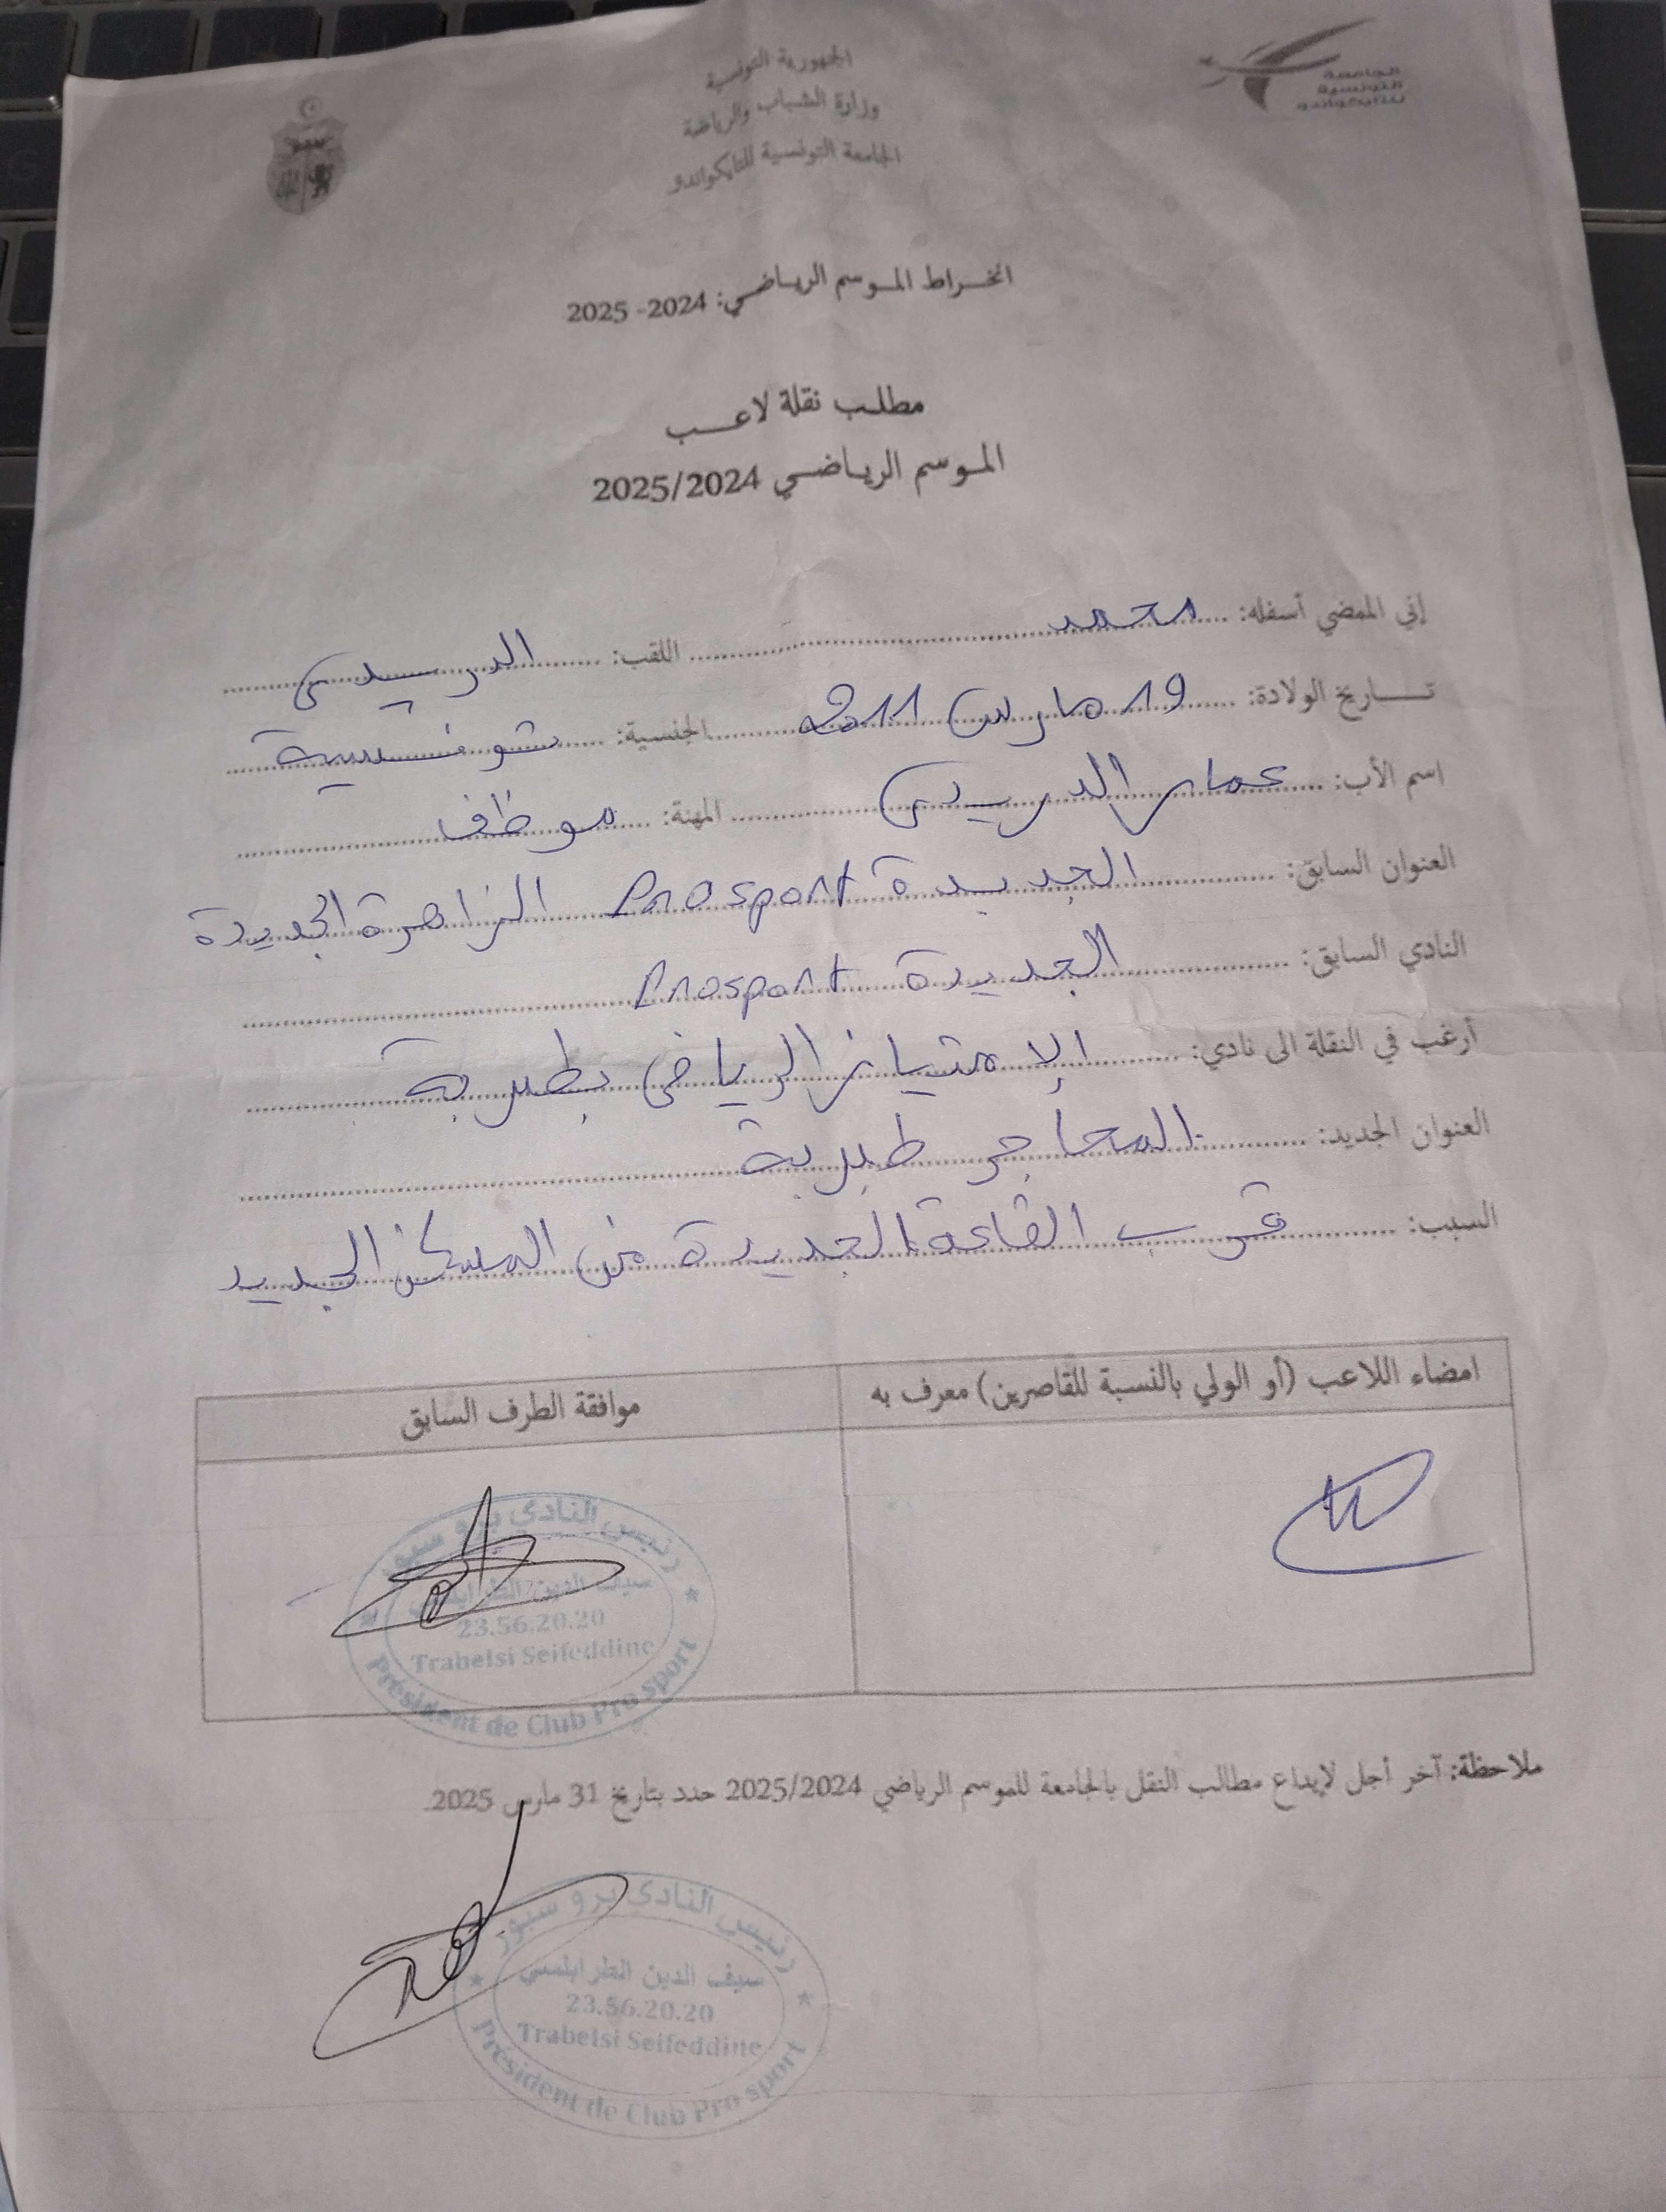 الجمهورية التونسية
وزارة الشباب والرياضة
الجامعة التونسية للتايكواندو
الجامعة
التونسية
للتايكواندو
انخراط الموسم الرياضي: 2024- 2025
مطلب نقلة لاعب
الموسم الرياضي 2025/2024
إني الممضي أسفله: محمد اللقب: الدريدي
تاريخ الولادة: 19 مارس 2011 الجنسية: تونسية
اسم الأب: عمار الدريدي المهنة: موظف
العنوان السابق: الجديدة Prosport الزاهرة الجديدة
النادي السابق: الجديدة Prosport
أرغب في النقلة الى نادي: الإمتياز الرياضي بطبربة
العنوان الجديد: المحاجر طبربة
السبب: قرب القاعة الجديدة من المسكن الجديد
امضاء اللاعب (أو الولي بالنسبة للقاصرين) معرف به
موافقة الطرف السابق
رئيس النادي برو سبور
سيف الدين الطرابلسي
23.56.20.20
Trabelsi Seifeddine
Président de Club Pro sport
ملاحظة: آخر أجل لإيداع مطالب النقل بالجامعة للموسم الرياضي 2025/2024 حدد بتاريخ 31 مارس 2025.
رئيس النادي برو سبور
سيف الدين الطرابلسي
23.56.20.20
Trabelsi Seifeddine
Président de Club Pro sport